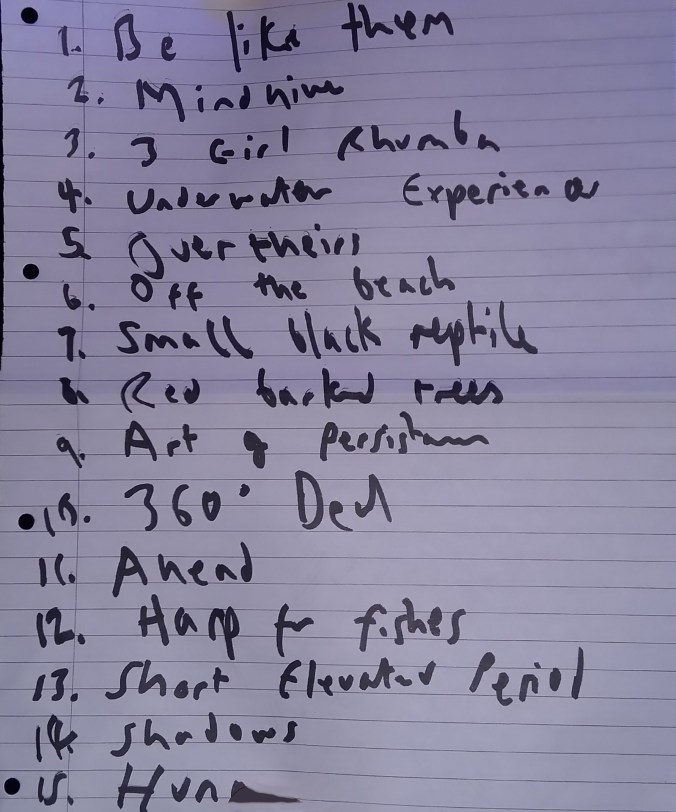 1. Be like them
2. Mind hive
3. 3 Girl Rhumba
4. Underwater Experiences
5. Over theirs
6. Off the beach
7. Small black reptile
8. Red barked trees
9. Art of Persistence
10. 360° Deal
11. Ahead
12. Harp for fishes
13. Short Elevated Period
14. Shadows
15.